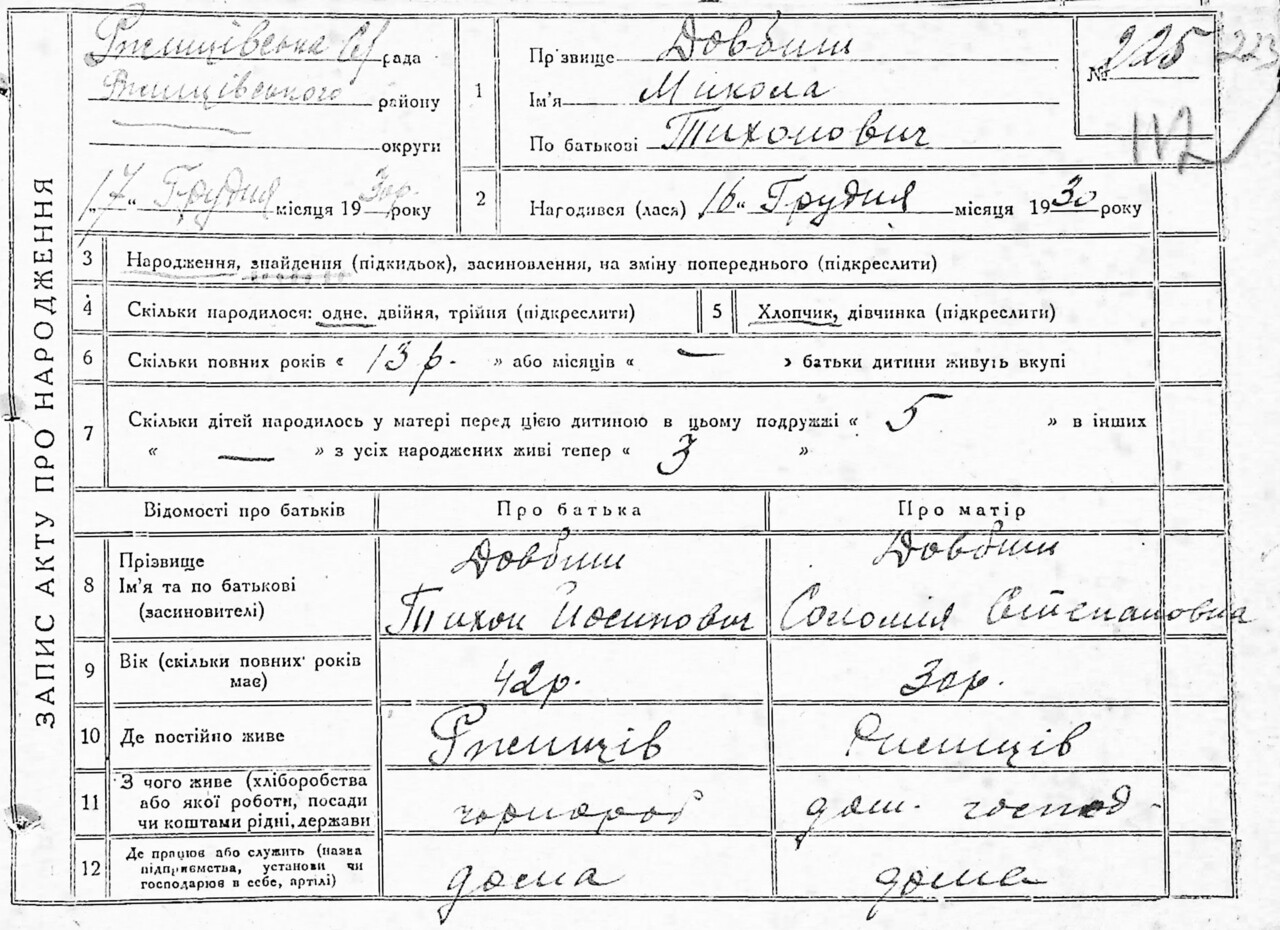 ЗАПИС АКТУ ПРО НАРОДЖЕННЯ
Ржищівська С/рада
Ржищівського району
округи
„17“ Грудня місяця 1930р. року
1
Прізвище Довбиш
Ім'я Микола
По батькові Тихонович
№ 225
223
2
Народився (лася) 16“ Грудня місяця 1930 року
3 Народження, знайдення (підкидьок), засиновлення, на зміну попереднього (підкреслити)
4 Скільки народилося: одне, двійня, трійня (підкреслити)
5 Хлопчик, дівчинка (підкреслити)
6 Скільки повних років « 13 р. » або місяців « — » батьки дитини живуть вкупі
7 Скільки дітей народилось у матері перед цією дитиною в цьому подружжі « 5 » в інших
« — » з усіх народжених живі тепер « 3 »
Відомості про батьків Про батька Про матір
8
Прізвище
Ім'я та по батькові
(засиновителі)
Довбиш
Тихон Йосипович
Довбиш
Соломія Степановна
9
Вік (скільки повних років
має)
42р.
30р.
10 Де постійно живе Ржищів Ржищів
11
З чого живе (хліборобства
або якої роботи, посади
чи коштами рідні, держави
чорнороб
дом. господ-
12
Де працює або служить (назва
підприємства, установи чи
господарює в себе, артілі)
дома
дома